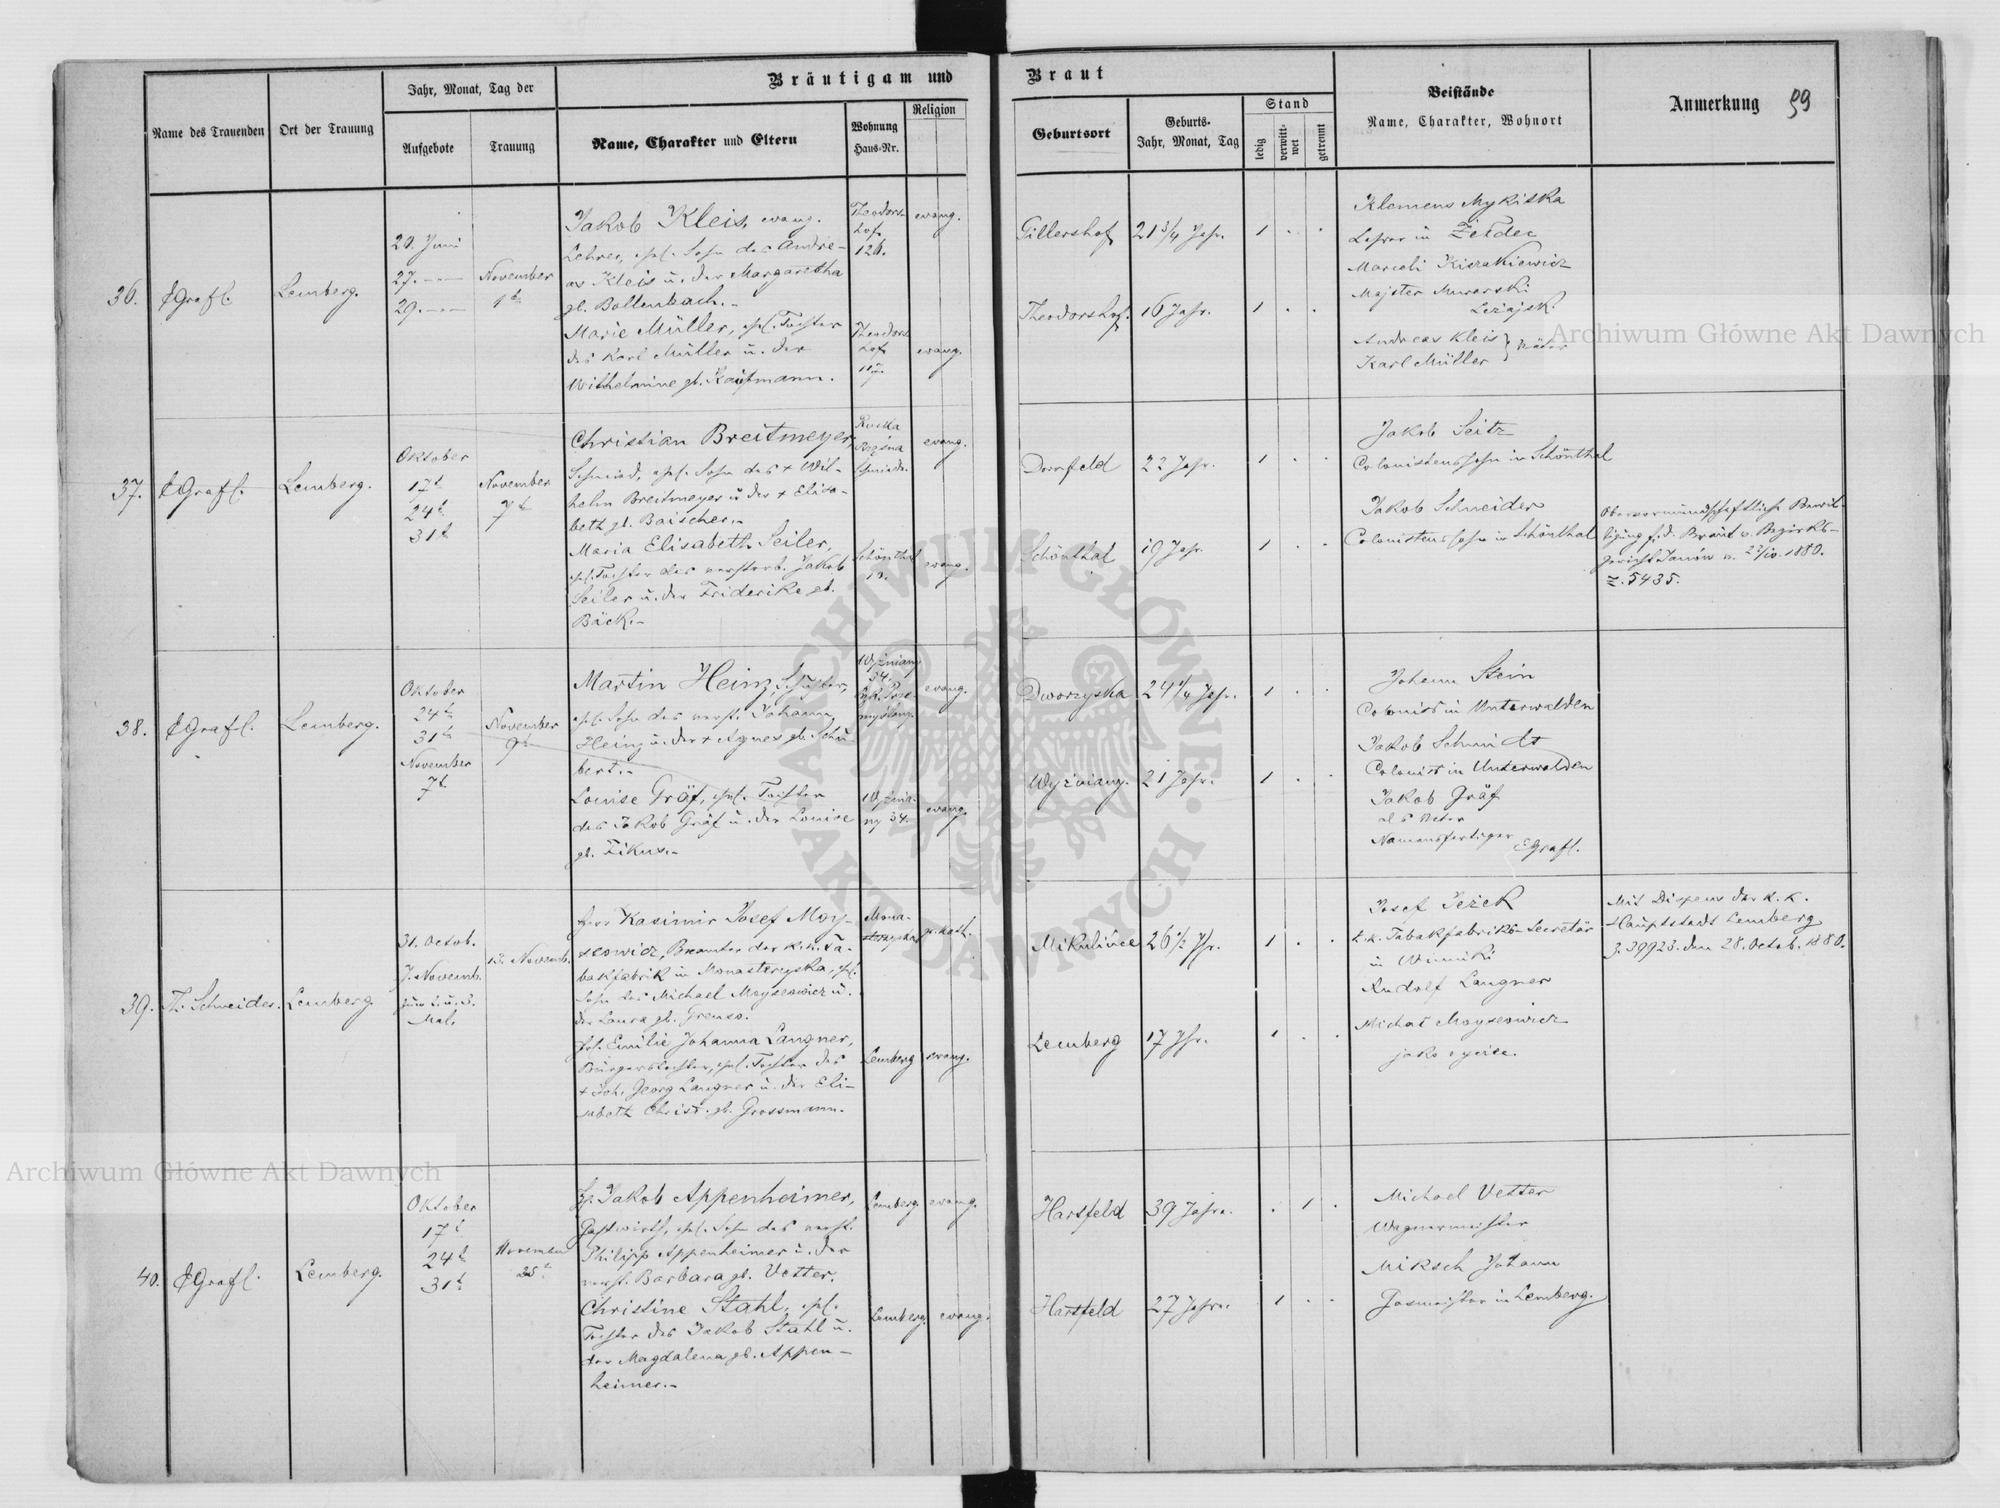 Bräutigam und Braut
99
Name des Trauenden
Ort der Trauung
Jahr, Monat, Tag der
Aufgebote
Trauung
Name, Charakter und Eltern
Wohnung
Haus-Nr.
Religion
Geburtsort
Geburts-
Jahr, Monat, Tag
Stand
ledig
verwitt-
wet
getrennt
Beistände
Name, Charakter, Wohnort
Anmerkung
36.
EGrafl.
Lemberg.
20. Juni
27. —
29. —
November
Jakob Kleis, evang.
Lehrer, ehel. Sohn des Andre-
as Kleis u. der Margaretha
gb. Bollenbach.-
Marie Müller, ehel. Tochter
des Karl Müller u. der
Wilhelmine gb. Kaufmann.
Theodors-
hof
126.
evang.
Theodors
hof
evang.
Gillershof
21 3/4 Jahr.
1 . .
Theodorshof.
16 Jahr.
1 . .
Klemens Mykitka
Lehrer in
Marceli
Majster Murarski
Leżajsk.
Andreas Kleis
Karl Müller
Väter
37.
EGrafl.
Lemberg.
Oktober
17t
24t
31t
November
7t
Christian Breitmeyer,
Schmied, ehel. Sohn des + Wil-
helm Breitmeyer u der + Elisa-
beth gb. Baischer.-
Maria Elisabeth Seiler,
ehel. Tochter des verstorb. Jakob
Seiler u. der Friderike gb.
Bäck.-
evang.
Schönthal
10.
evang.
Dornfeld
22 Jahr.
1 . .
Schönthal
19 Jahr.
1 . .
Jakob Seitz
Colonistenssohn in Schönthal
Jakob Schneider
Colonistenssohn in Schönthal
Obervormundschaftliche Bewil-
ligung f. d. Braut v. Bezirks-
gericht Janów v. 22/10. 1880.
Z. 5435.
38.
EGrafl.
Lemberg.
Oktober
24t
31t
November
7t
November
9t
Martin Heinz,
ehel. Sohn des verst. Johann
Heinz u. der + Agnes gb. Schu-
bert.-
Louise Gräf, ehel. Tochter
des Jakob Gräf u. der Louise
gb. Fikus.-
Wyżniany
34.
evang.
Wyżnia-
ny 34.
evang.
Dworzyska
24 1/4 Jahr.
1 . .
Wyżniany.
21 Jahr.
1 . .
Johann Stein
Colonist in Unterwalden
Jakob Schmidt
Colonist in Unterwalden
Jakob Gräf
als Vater
Namensfertiger EGrafl.
39.
Th. Schneider.
Lemberg
31. Octob.
7. Novemb.
zum 1. u. 3.
Mal.
13. Novemb.
Herr Kasimir Josef Moy-
seowicz, Beamter der k. k. Ta-
bakfabrik in Monasteryska, ehl.
Sohn des Michael Moyseowicz u.
der Laura gb.
Frl. Emilie Johanna Langner,
Bürgerstochter, ehel. Tochter des
+ Joh. Georg Langner u. der Eli-
sabeth Christ. gb. Grossmann.
Mona-
steryska
Lemberg
evang.
Mikulińce
26 1/2 Jhr.
1 . .
Lemberg
17 Jhr.
1 . .
Josef Ježek
k. k. Tabakfabriks-Secretär
in Winniki
Rudolf Langner
Michał Moyseowicz
jako ojciec.
Mit Dispens der k. k.
Hauptstadt Lemberg
Z. 39923. den 28. Octob. 1880.
40.
EGrafl.
Lemberg.
Oktober
17t
24t
31t
November
25t
H. Jakob Appenheimer,
Gastwirth, ehel. Sohn des verst.
Philipp Appenheimer u. der
verst. Barbara gb. Vetter.
Christine Stahl, ehel.
Tochter des Jakob Stahl u.
der Magdalena gb. Appen-
heimer.-
Lemberg.
evang.
Lemberg.
evang.
Hartfeld
39 Jahre.
. 1 .
Hartfeld
27 Jahre.
1 . .
Michael Vetter
Wagnermeister
Miksch Johann
Gasmeister in Lemberg.
Archiwum Główne Akt Dawnych
Archiwum Główne Akt Dawnych
ARCHIWUM GŁÓWNE AKT DAWNYCH